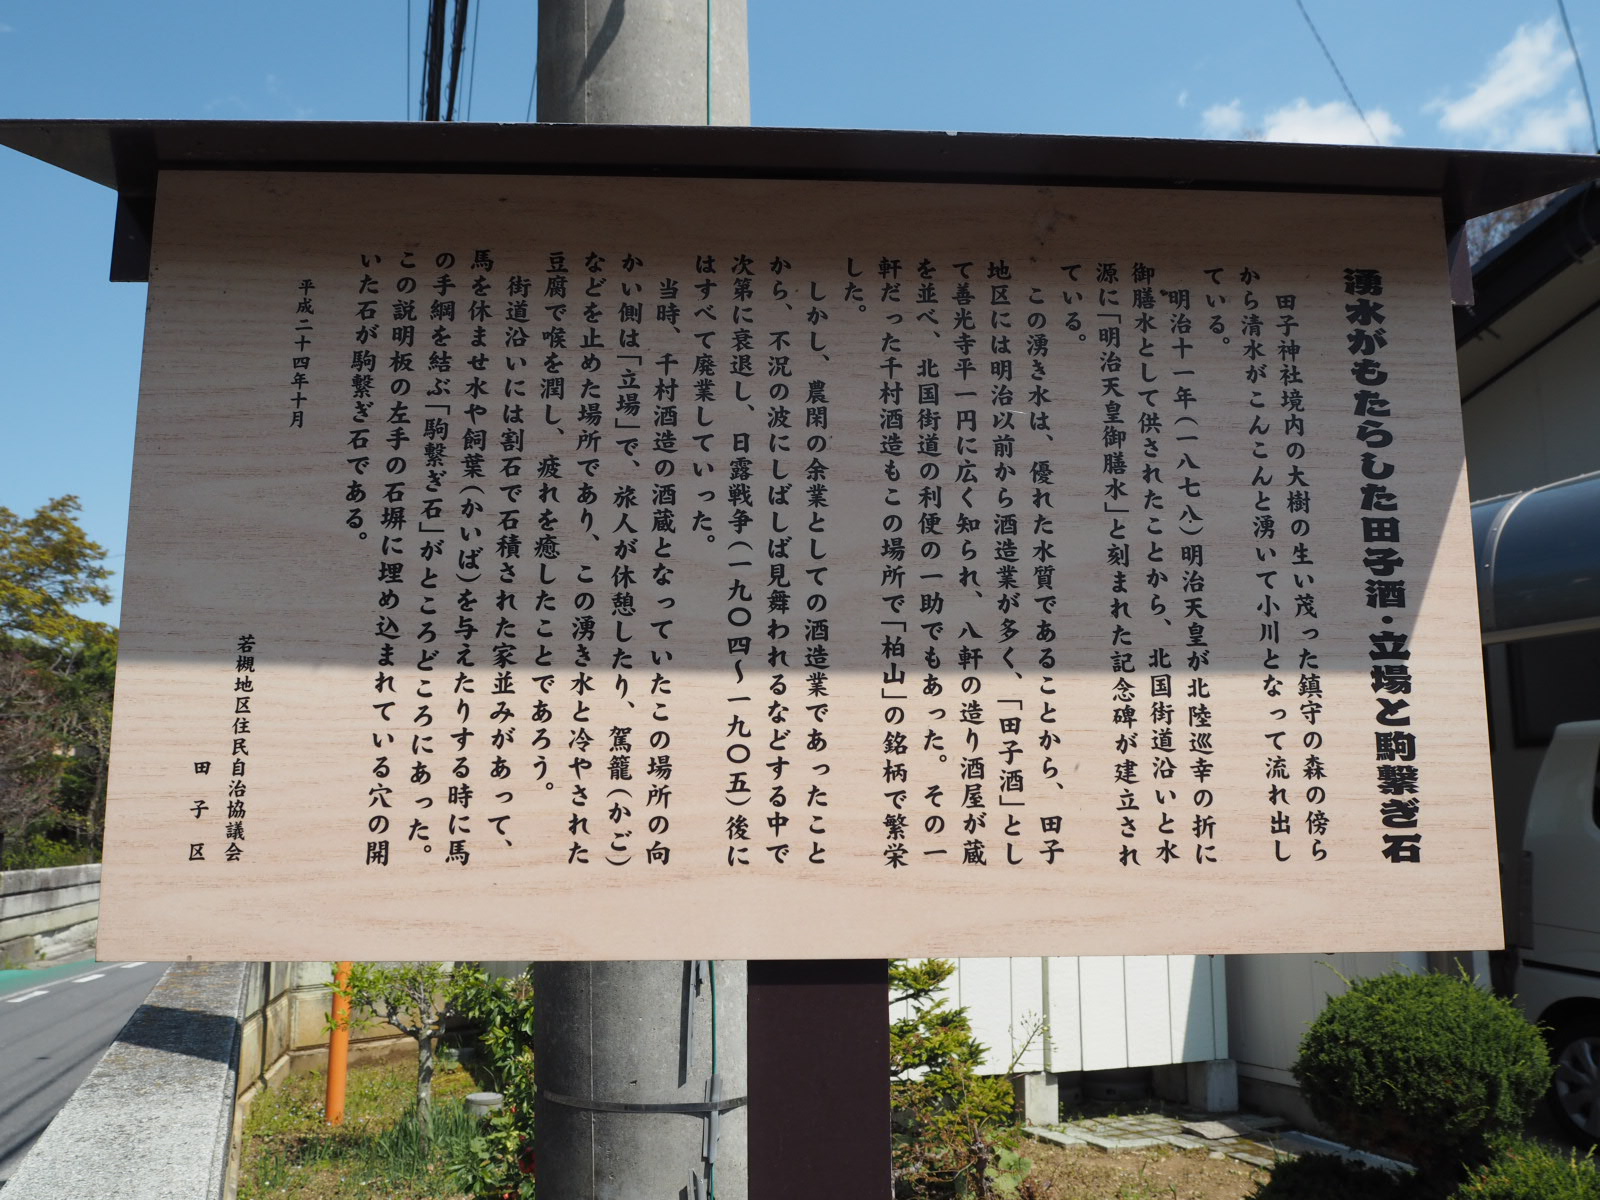 湧水がもたらした田子酒・立場と駒繋ぎ石
田子神社境内の大樹の生い茂った鎮守の森の傍ら
から清水がこんこんと湧いて小川となって流れ出し
ている。
明治十一年(一八七八)明治天皇が北陸巡幸の折に
御膳水として供されたことから、北国街道沿いと水
源に「明治天皇御膳水」と刻まれた記念碑が建立され
ている。
この湧き水は、優れた水質であることから、田子
地区には明治以前から酒造業が多く、「田子酒」とし
て善光寺平一円に広く知られ、八軒の造り酒屋が蔵
を並べ、北国街道の利便の一助でもあった。その一
軒だった千村酒造もこの場所で「柏山」の銘柄で繁栄
した。
しかし、農閑の余業としての酒造業であったこと
から、不況の波にしばしば見舞われるなどする中で
次第に衰退し、日露戦争(一九〇四～一九〇五)後に
はすべて廃業していった。
当時、千村酒造の酒蔵となっていたこの場所の向
かい側は「立場」で、旅人が休憩したり、駕籠(かご)
などを止めた場所であり、この湧き水と冷やされた
豆腐で喉を潤し、疲れを癒したことであろう。
街道沿いには割石で石積された家並みがあって、
馬を休ませ水や飼葉(かいば)を与えたりする時に馬
の手綱を結ぶ「駒繋ぎ石」がところどころにあった。
この説明板の左手の石塀に埋め込まれている穴の開
いた石が駒繋ぎ石である。
平成二十四年十月
若槻地区住民自治協議会
田子区